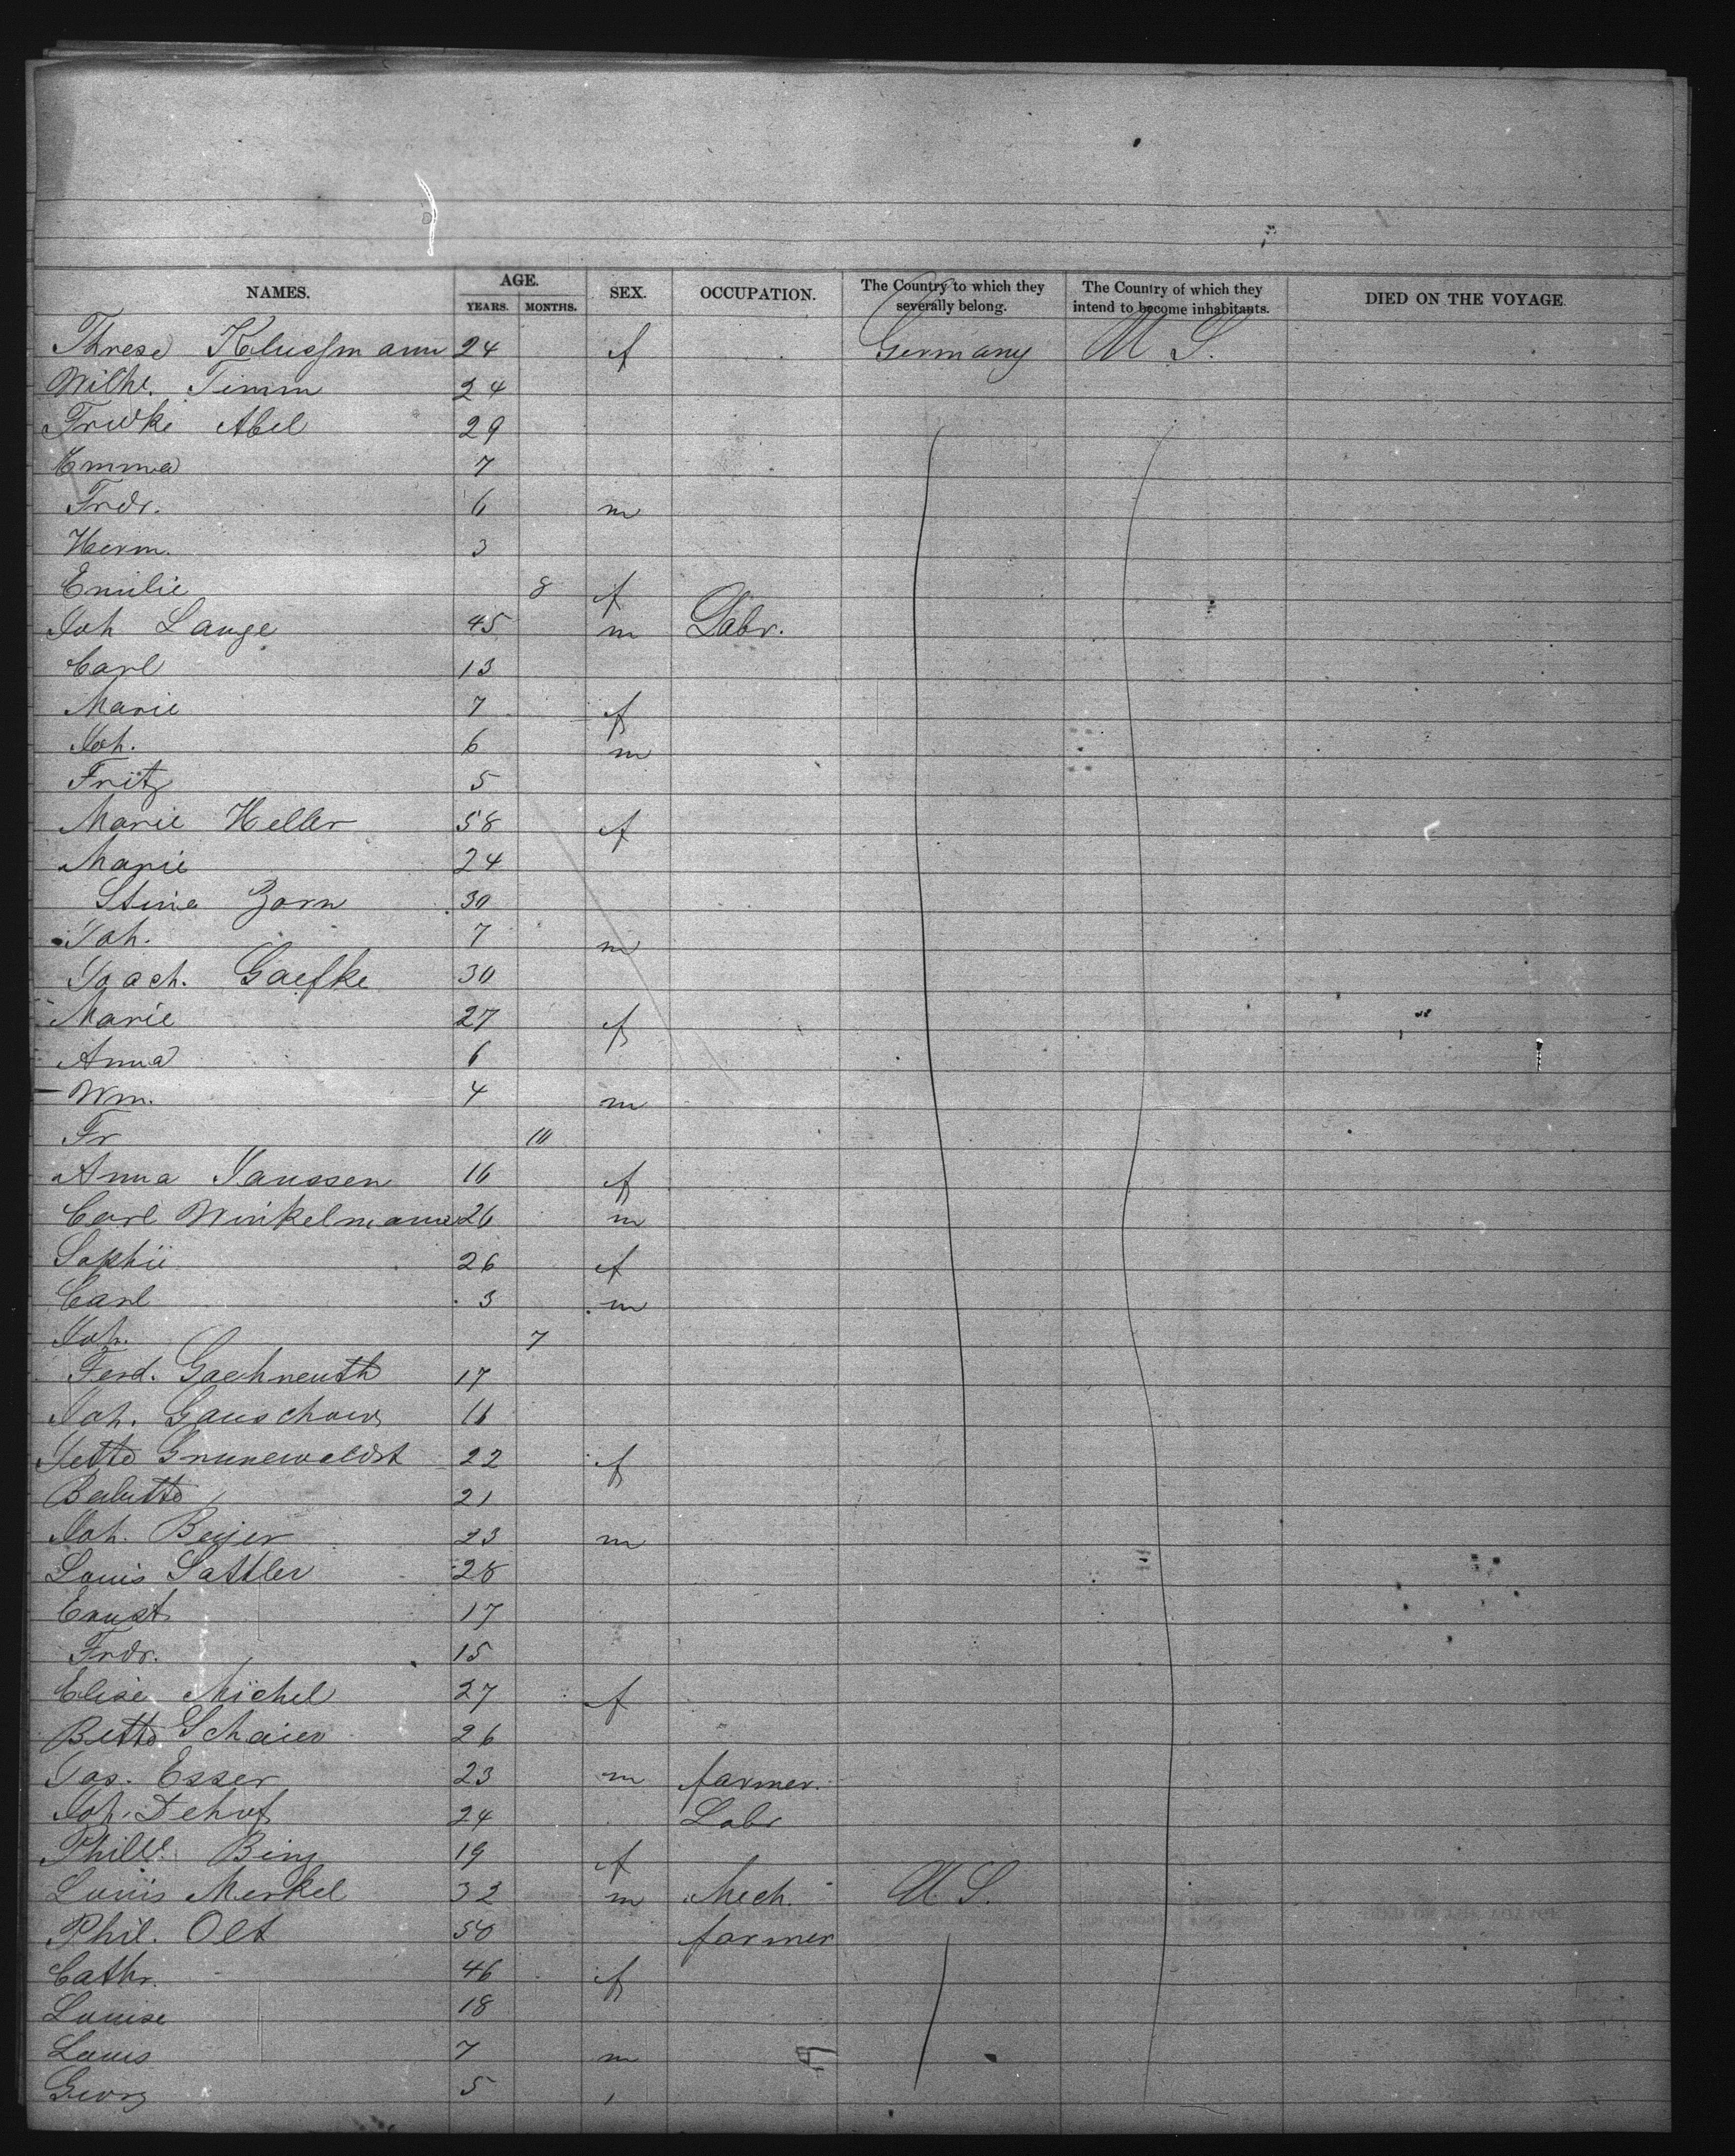 NAMES. AGE. YEARS. MONTHS. SEX. OCCUPATION. The Country to which they severally belong. The Country of which they intend to become inhabitants. DIED ON THE VOYAGE.
Threse Klussmann 24 f Germany U S.
Wilhe. Timm 24
Fridke Abel 29
Emma 7
Frdr. 6 m
Herm. 3
Emilie 8 f
Joh Lange 45 m Labr.
Carl 13
Marie 7 f
Joh. 6 m
Fritz 5
Marie Heller 58 f
Marie 24
Stine Zorn 30
Joh. 7 m
Joach. Gaefke 30
Marie 27 f
Anna 6
Wm. 4 m
Fr 10
Anna Janssen 16 f
Carl Winkelmann 26 m
Sophie 26 f
Carl 3 m
Joh. 7
Ferd. 17
Joh. Ganschow 16
Jette Grunewaldt 22 f
21
Joh. Beyer 23 m
Louis Sattler 28
Ernst 17
Frdr. 15
Elise Michel 27 f
Bette Schaier 26
Jos. Esser 23 m farmer.
Joh. Dehof 24 Labr
Phille. Bing 19 f
Louis Merkel 32 m Mech. U. S.
Phil. Olt 50 farmer
Cathr. 46 f
Louise 18
Louis 7 m
Georg 5